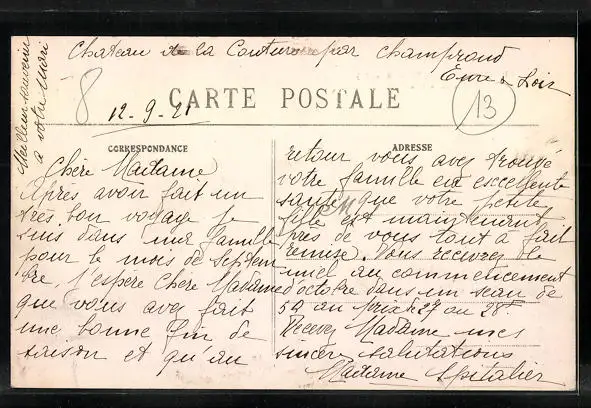 Meilleur souvenir
à votre mari
Chateau de la Couture par Champrond
Eure & Loir
8
12-9-21
CARTE POSTALE
13
CORRESPONDANCE
Chère Madame
Après avoir fait un
très bon voyage je
suis dans ma famille
pour le mois de Septem
bre, j'espère Chère Madame
que vous avez fait
une bonne fin de
saison et qu'au
ADRESSE
retour vous avez trouvé
votre famille en excellente
santé que votre petite
fille est maintenant
près de vous tout à fait
remise. Vous recevrez le
miel au commencement
d'octobre dans un seau de
au prix de 27 au 28f.
Recevez Madame mes
sincer salutations
Madame Spitalier